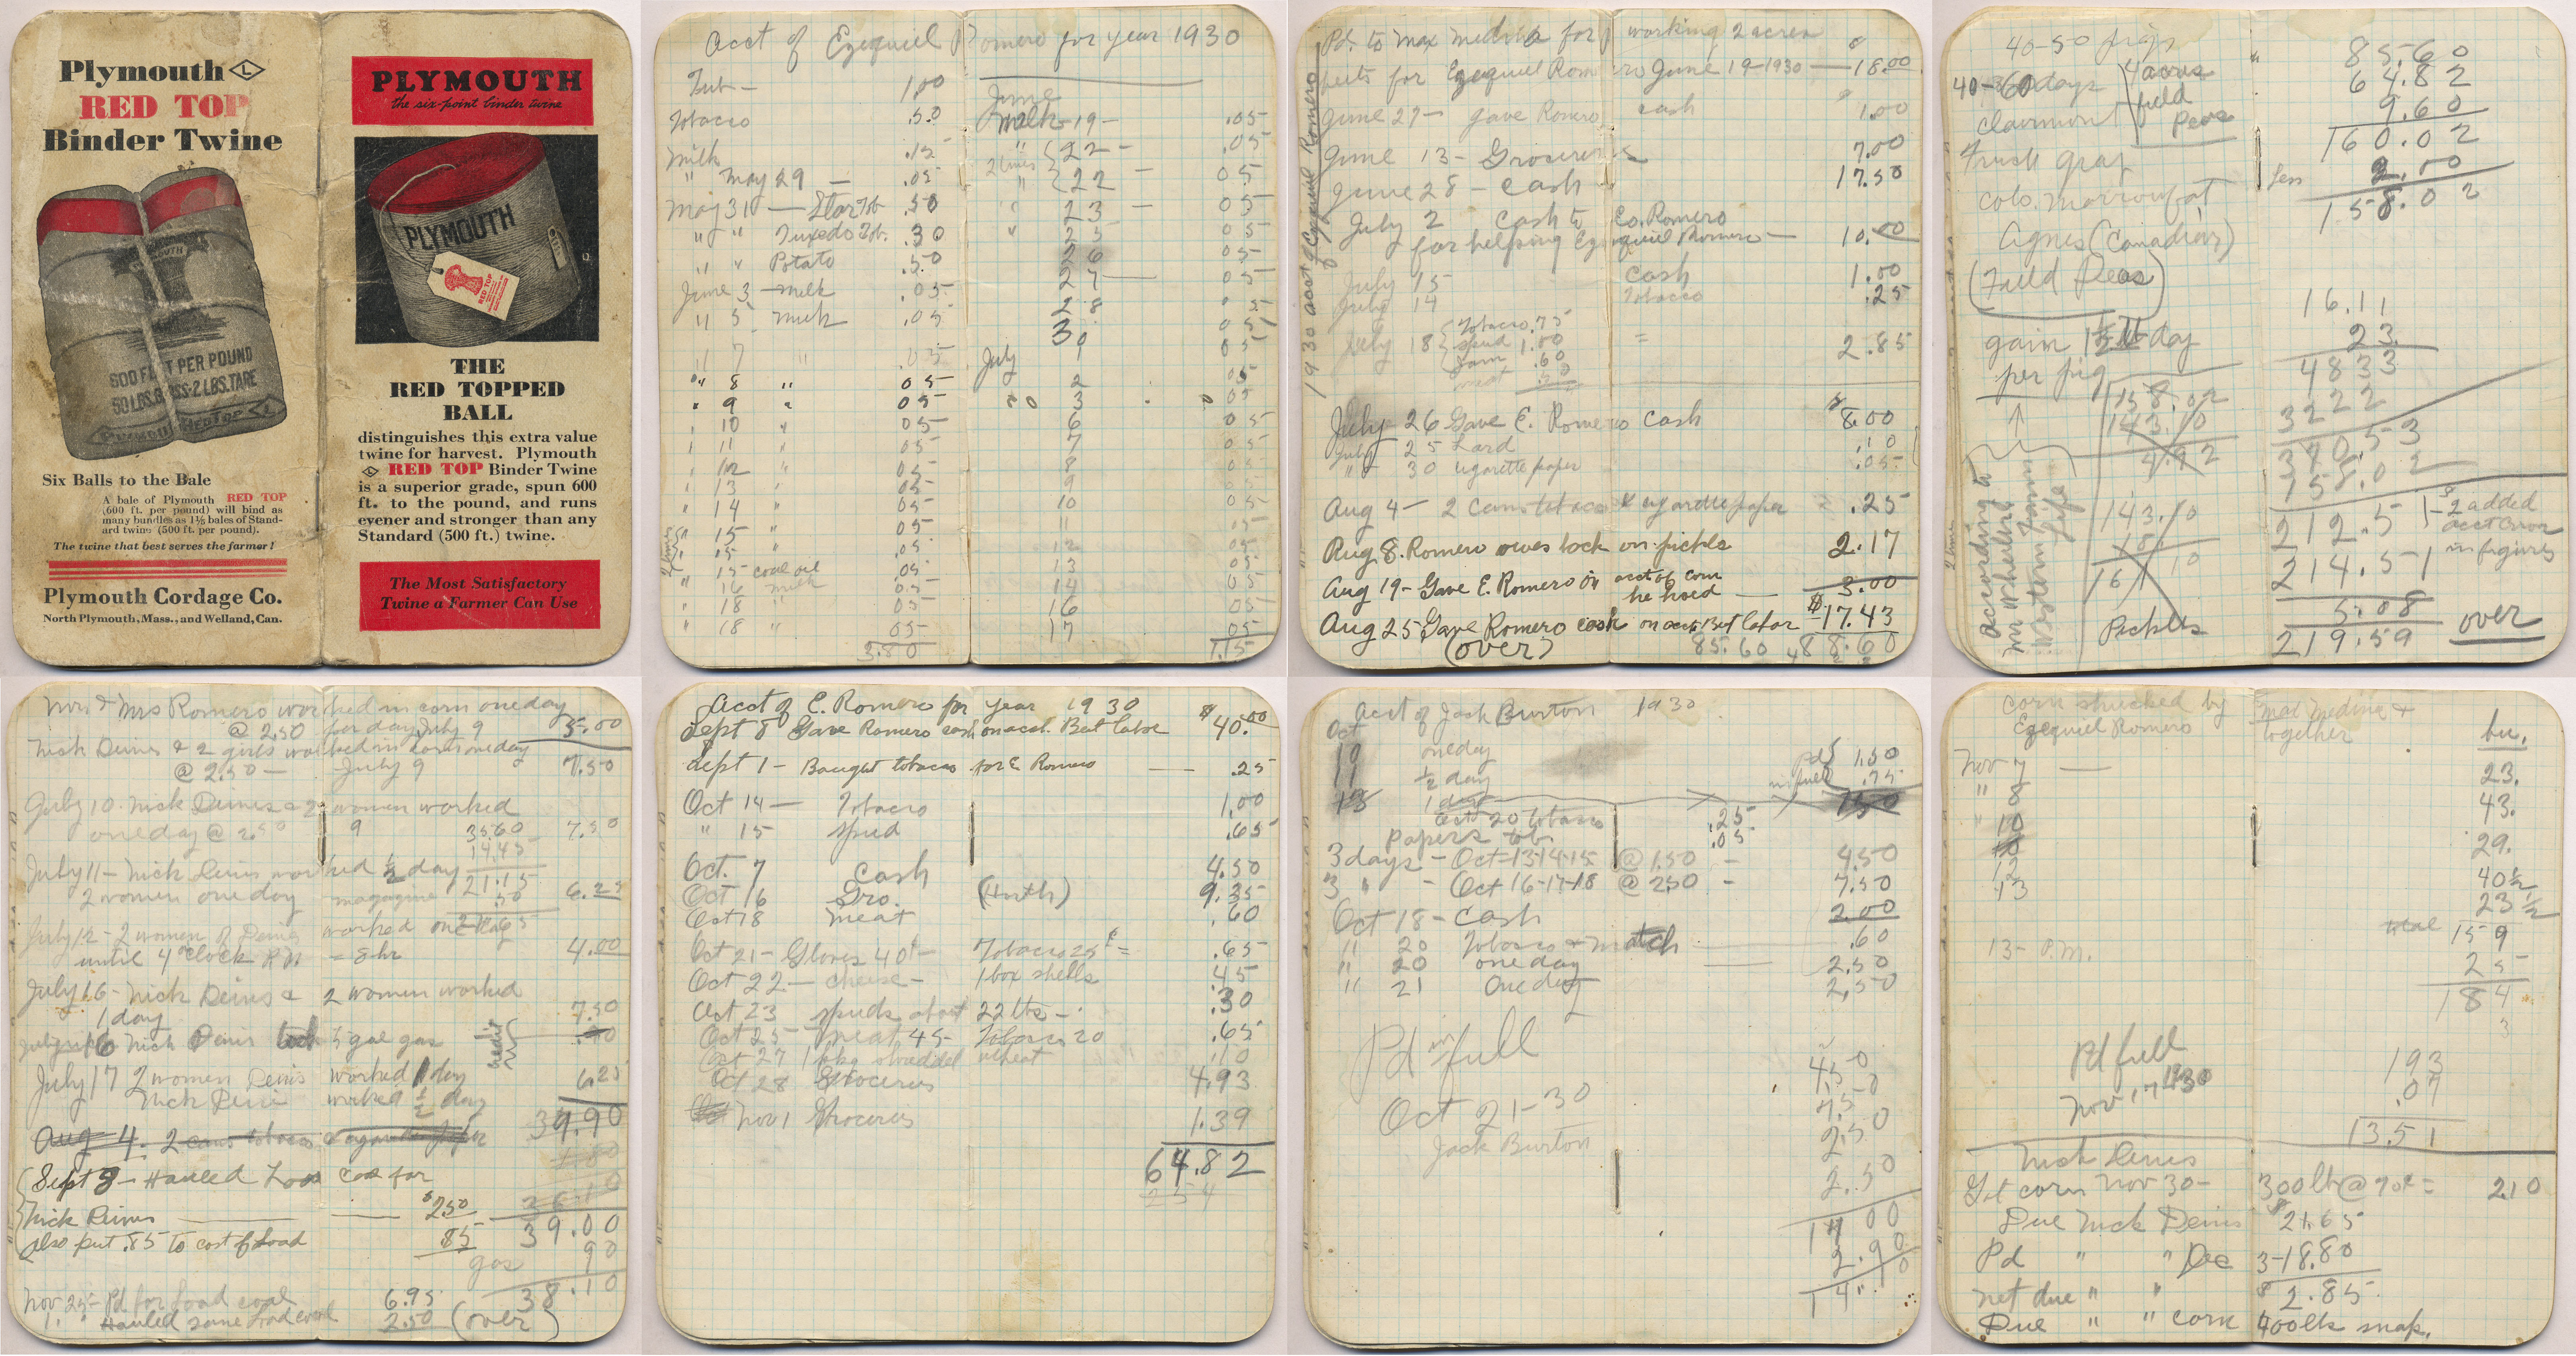 Plymouth L
RED TOP
Binder Twine
PLYMOUTH
600 FEET PER POUND
50 LBS. GROSS-2 LBS. TARE
Six Balls to the Bale
A bale of Plymouth RED TOP
(600 ft. per pound) will bind as
many bundles as 1½ bales of Stand-
ard twine (500 ft. per pound).
The twine that best serves the farmer!
Plymouth Cordage Co.
North Plymouth, Mass., and Welland, Can.
PLYMOUTH
the six-point binder twine
PLYMOUTH
RED TOP
THE
RED TOPPED
BALL
distinguishes this extra value
twine for harvest. Plymouth
RED TOP Binder Twine
is a superior grade, spun 600
ft. to the pound, and runs
evener and stronger than any
Standard (500 ft.) twine.
The Most Satisfactory
Twine a Farmer Can Use
Acct of Ezequiel Romero for year 1930
Tub — 1.00
Tobacco .50
Milk .15
" May 29 — .05
May 31 — Star Tob. .50
" " Tuxedo Tob. .30
" " Potato .50
June 3 — milk .05
" 5 milk .05
" 7 " .05
" 8 " 05
" 9 " 05
" 10 " 05
" 11 " 05
" 12 " 05
" 13 " 05
" 14 " 05
2 times
" 15 " 05
" 15 .05
" 15 coal oil .05
" 16 milk 05
" 18 " 05
" 18 " 05
3.80
June
Milk — 19 — .05
2 times " 22 — .05
" 22 — 05
" 23 — 05
" 25 05
26 05
27 — 05
28 05
30 05
July 1 05
2 05
3 05
6 05
7 05
8 05
9 05
10 05
11 05
12 05
13 05
14 05
16 05
17 05
1.15
1930 acct of Ezequiel Romero
Pd. to Max Medina for working 2 acres
beets for Ezequiel Romero June 19-1930 — 18.00
June 27 — gave Romero cash $1.00
June 13 — Groceries 7.00
June 28 — cash 17.50
July 2 cash to Eo. Romero
for helping Ezequiel Romero — 10.00
July 15 cash 1.00
July 14 Tobacco .25
July 18 Tobacco .75
spud 1.00 = 2.85
Jam .60
meat .50
July 26 Gave E. Romero cash $8.00
July 25 Lard .10
" 30 cigarette paper .05
Aug 4 — 2 cans tobaco & cigarette paper .25
Aug 8. Romero owes back on pickle 2.17
Aug 19 — Gave E. Romero on acct of corn
he hoed — 3.00
Aug 25 Gave Romero cash on acct Beet labor $17.43
(over) 85.60 88.60
40-50 pigs
40-60 days 4 acres
field
peas
Clairmont
Truck gray
Colo. marrowfat
Agnes (Canadian)
(Field Peas)
gain 1½ lb day
per pig
According to
Mr Wheelers
Western Farm
Life
158.02
143.10
4.92
143.10
18
161.10
Pickles
" 85.60
64.82
9.60
160.02
less 2.00
158.02
16.11
23
4833
3222
370.53
158.02
212.51 — 2 added
acct error
in figures
214.51
5.08
219.59 over
Mr & Mrs Romero worked in corn one day
@ 2.50 for day July 9 5.00
Nick Deines & 2 girls worked in corn one day
@ 2.50 — July 9 7.50
July 10. Nick Deines & 2 women worked
one day @ 2.50 7.50
35.60
14.45
21.15
July 11 — Nick Deines worked ½ day
2 women one day 6.25
magazine .50
July 12 — 2 women of Deines worked one day
until 4 o'clock P.M. = 8 hr 4.00
July 16 — Nick Deines & 2 women worked
1 day 7.50
July 16 Nick Deines took 5 gal gas .90
credit
July 17 2 women Deines worked 1 day 6.25
Nick Deines worked ½ day
39.90
Aug 4. 2 cans tobacco & cigarette paper
Sept 9 — Hauled Load coal for
Nick Deines — $2.50
also put .85 to cost of Load 85
39.00
gas 90
38.10
Nov 25 — Pd for load coal 6.95
" " Hauled same load coal 2.50 (over)
Acct of E. Romero for year 1930
Sept 8 Gave Romero cash on acct. Beet labor $40.00
Sept 1 — Bought tobacco for E Romero — .25
Oct 14 — Tobacco 1.00
" 15 spud .65
Oct. 7 Cash 4.50
Oct 16 Gro. 9.35
Oct 18 meat .60
Oct 21 — Gloves 40¢ Tobacco 25¢ = .65
Oct 22 — cheese — 1 box shells .45
Oct 23 spuds about 22 lbs — .30
Oct 25 meat 45 — Tobacco 20 .65
Oct 27 1 pkg shredded wheat .10
Oct 28 Groceries 4.93
Nov 1 Groceries 1.39
64.82
254
Acct of Jack Burton 1930
Oct
one day Pd 1.50
½ day in full .75
13 1 day 150
Oct 20 tobacco .25
Papers tob .05
3 days — Oct-13-14-15 @ 1.50 — 4.50
3 " — Oct 16-17-18 @ 2.50 — 7.50
Oct 18 — Cash 2.00
" 20 Tobacco & match .60
" 20 one day 2.50
" 21 One day 2.50
Pd in full
Oct 21-30
Jack Burton
4.50
7.50
2.50
2.50
17 00
2.90
14.10
Corn shucked by Max Medina &
Ezequiel Romero together bu.
Nov 7 — 23.
" 8 43.
" 10 29.
12 40½
13 23½
total 159
13 — P.M. 25
184
Pd full
Nov, 17 1930
193
.07
13.51
Nick Deines
Got corn Nov 30 — 300 lb @ 70¢ = 2.10
Due Nick Deines $21.65
Pd " " Dec 3 — 18.80
net due " " $2.85
Due " " corn 400 lbs snap.